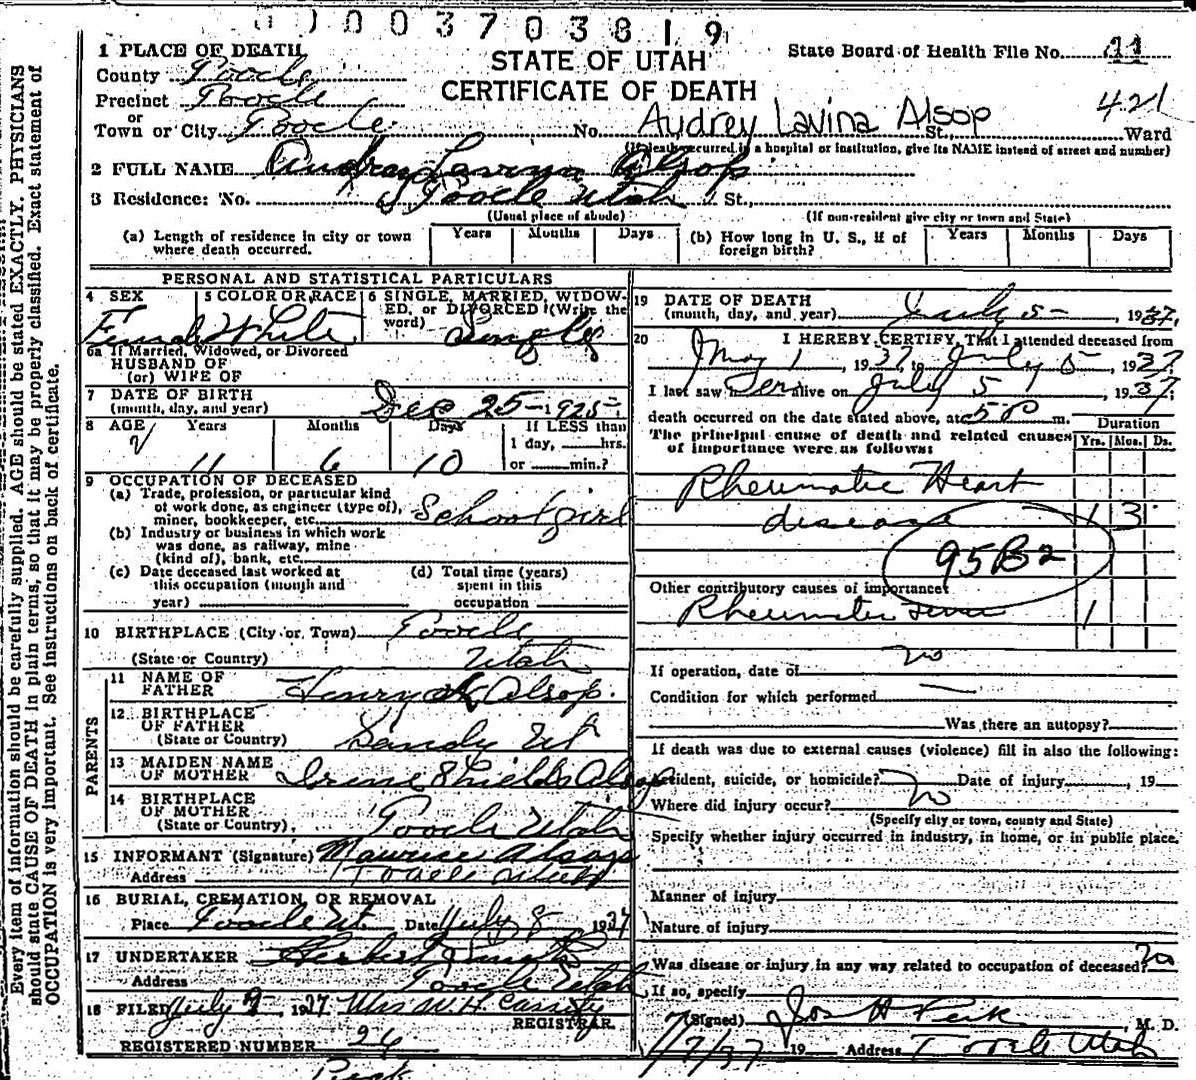 0 0 0 3 7 0 3 8 1 9
STATE OF UTAH
CERTIFICATE OF DEATH
State Board of Health File No. 11
421
1 PLACE OF DEATH
County Tooele
Precinct Tooele
or
Town or City Tooele No. Audrey Lavina Alsop St., Ward
(If death occurred in a hospital or institution, give its NAME instead of street and number)
2 FULL NAME Audrey Lavina Alsop
3 Residence: No. Tooele Utah St.,
(Usual place of abode) (If non-resident give city or town and State)
(a) Length of residence in city or town where death occurred. Years Months Days (b) How long in U. S., if of foreign birth? Years Months Days
PERSONAL AND STATISTICAL PARTICULARS
4 SEX Female
5 COLOR OR RACE White
6 SINGLE, MARRIED, WIDOWED, or DIVORCED (Write the word) Single
6a If Married, Widowed, or Divorced
HUSBAND OF
(or) WIFE OF
7 DATE OF BIRTH
(month, day, and year) Dec 25-1925
8 AGE Years Months Days If LESS than
1 day, hrs.
11 6 10 or min.?
9 OCCUPATION OF DECEASED
(a) Trade, profession, or particular kind
of work done, as engineer (type of),
miner, bookkeeper, etc. School girl
(b) Industry or business in which work
was done, as railway, mine
(kind of), bank, etc.
(c) Date deceased last worked at
this occupation (month and
year)
(d) Total time (years)
spent in this
occupation
10 BIRTHPLACE (City or Town) Tooele
(State or Country) Utah
PARENTS
11 NAME OF
FATHER Henry Alsop.
12 BIRTHPLACE
OF FATHER
(State or Country) Sandy Ut
13 MAIDEN NAME
OF MOTHER Irene Shields Alsop
14 BIRTHPLACE
OF MOTHER
(State or Country) Tooele Utah
15 INFORMANT (Signature) Maurice Alsop
Address Tooele Utah
16 BURIAL, CREMATION, OR REMOVAL
Place Tooele Ut. Date July 8 1937
17 UNDERTAKER Herbert Smith
Address Tooele Utah
18 FILED July 9 1937 Mrs W. H. Cassity
REGISTRAR.
REGISTERED NUMBER 26
Peck
19 DATE OF DEATH
(month, day, and year) July 5- , 1937.
20 I HEREBY CERTIFY, That I attended deceased from
May 1 , 1937, to July 5- , 1937
I last saw her alive on July 5 , 1937
death occurred on the date stated above, at 5 P m.
The principal cause of death and related causes
of importance were as follows:
Duration
Yrs. Mos. Ds.
Rheumatic Heart
disease 1 3
95B2
Other contributory causes of importance:
Rheumatic Fever 1
If operation, date of no
Condition for which performed
Was there an autopsy?
If death was due to external causes (violence) fill in also the following:
Accident, suicide, or homicide? no Date of injury , 19
Where did injury occur?
(Specify city or town, county and State)
Specify whether injury occurred in industry, in home, or in public place.
Manner of injury
Nature of injury
Was disease or injury in any way related to occupation of deceased? no
If so, specify
(Signed) Jos H Peck , M. D.
7/7/37 19 Address Tooele Utah
Every item of information should be carefully supplied. AGE should be stated EXACTLY. PHYSICIANS
should state CAUSE OF DEATH in plain terms, so that it may be properly classified. Exact statement of
OCCUPATION is very important. See instructions on back of certificate.